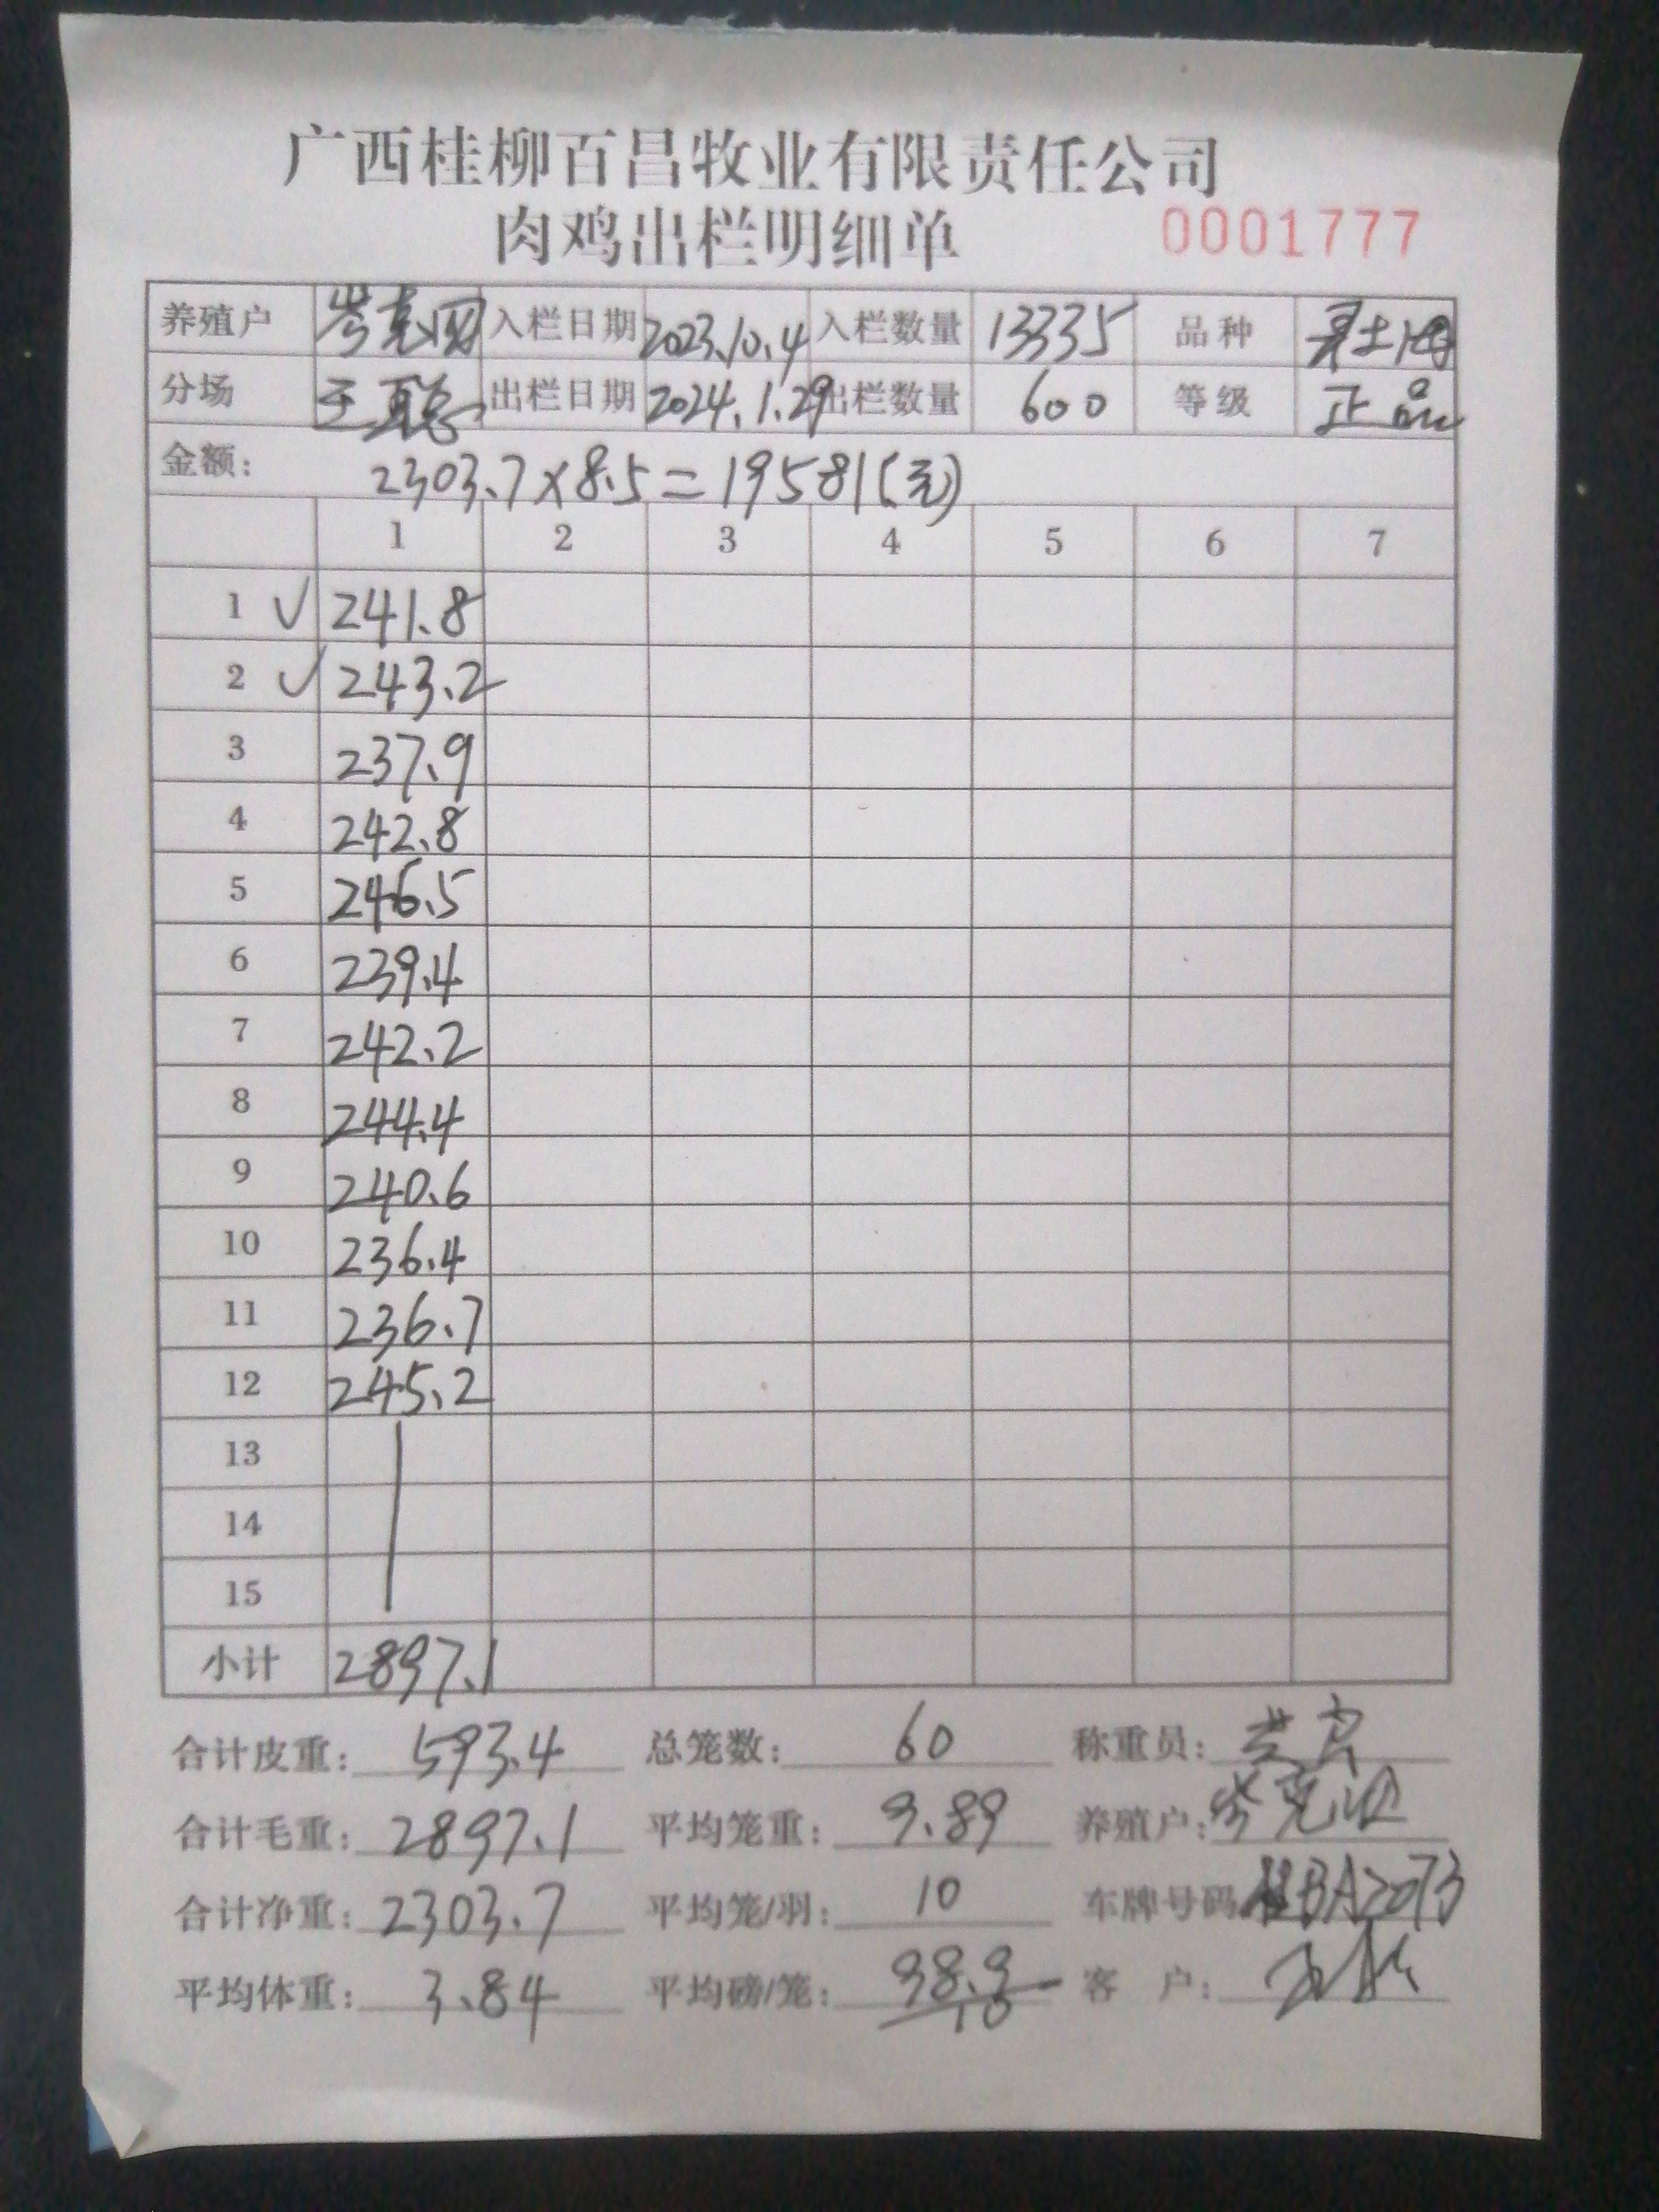 广西桂柳百昌牧业有限责任公司
肉鸡出栏明细单 0001777
养殖户 岑 入栏日期 2023.10.4 入栏数量 13335 品种
分场 王聪 出栏日期 2024.1.29 出栏数量 600 等级 正品
金额: 2303.7×8.5=19581(元)
1 2 3 4 5 6 7
1 ✓ 241.8
2 ✓ 243.2
3 237.9
4 242.8
5 246.5
6 239.4
7 242.2
8 244.4
9 240.6
10 236.4
11 236.7
12 245.2
13
14
15
小计 2897.1
合计皮重: 593.4 总笼数: 60 称重员:
合计毛重: 2897.1 平均笼重: 9.89 养殖户: 岑
合计净重: 2303.7 平均笼/羽: 10 车牌号码: 桂BA2073
平均体重: 3.84 平均磅/笼: 客 户: